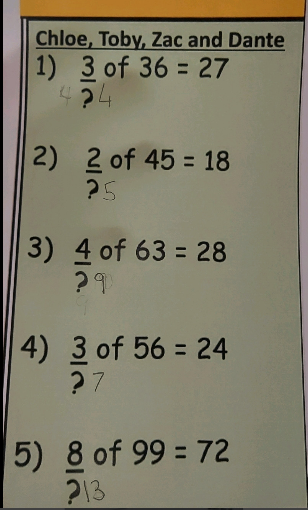 Chloe, Toby, Zac and Dante
1) 3 of 36 = 27
4 ? 4
2) 2 of 45 = 18
? 5
3) 4 of 63 = 28
? 9
4) 3 of 56 = 24
? 7
5) 8 of 99 = 72
? 13